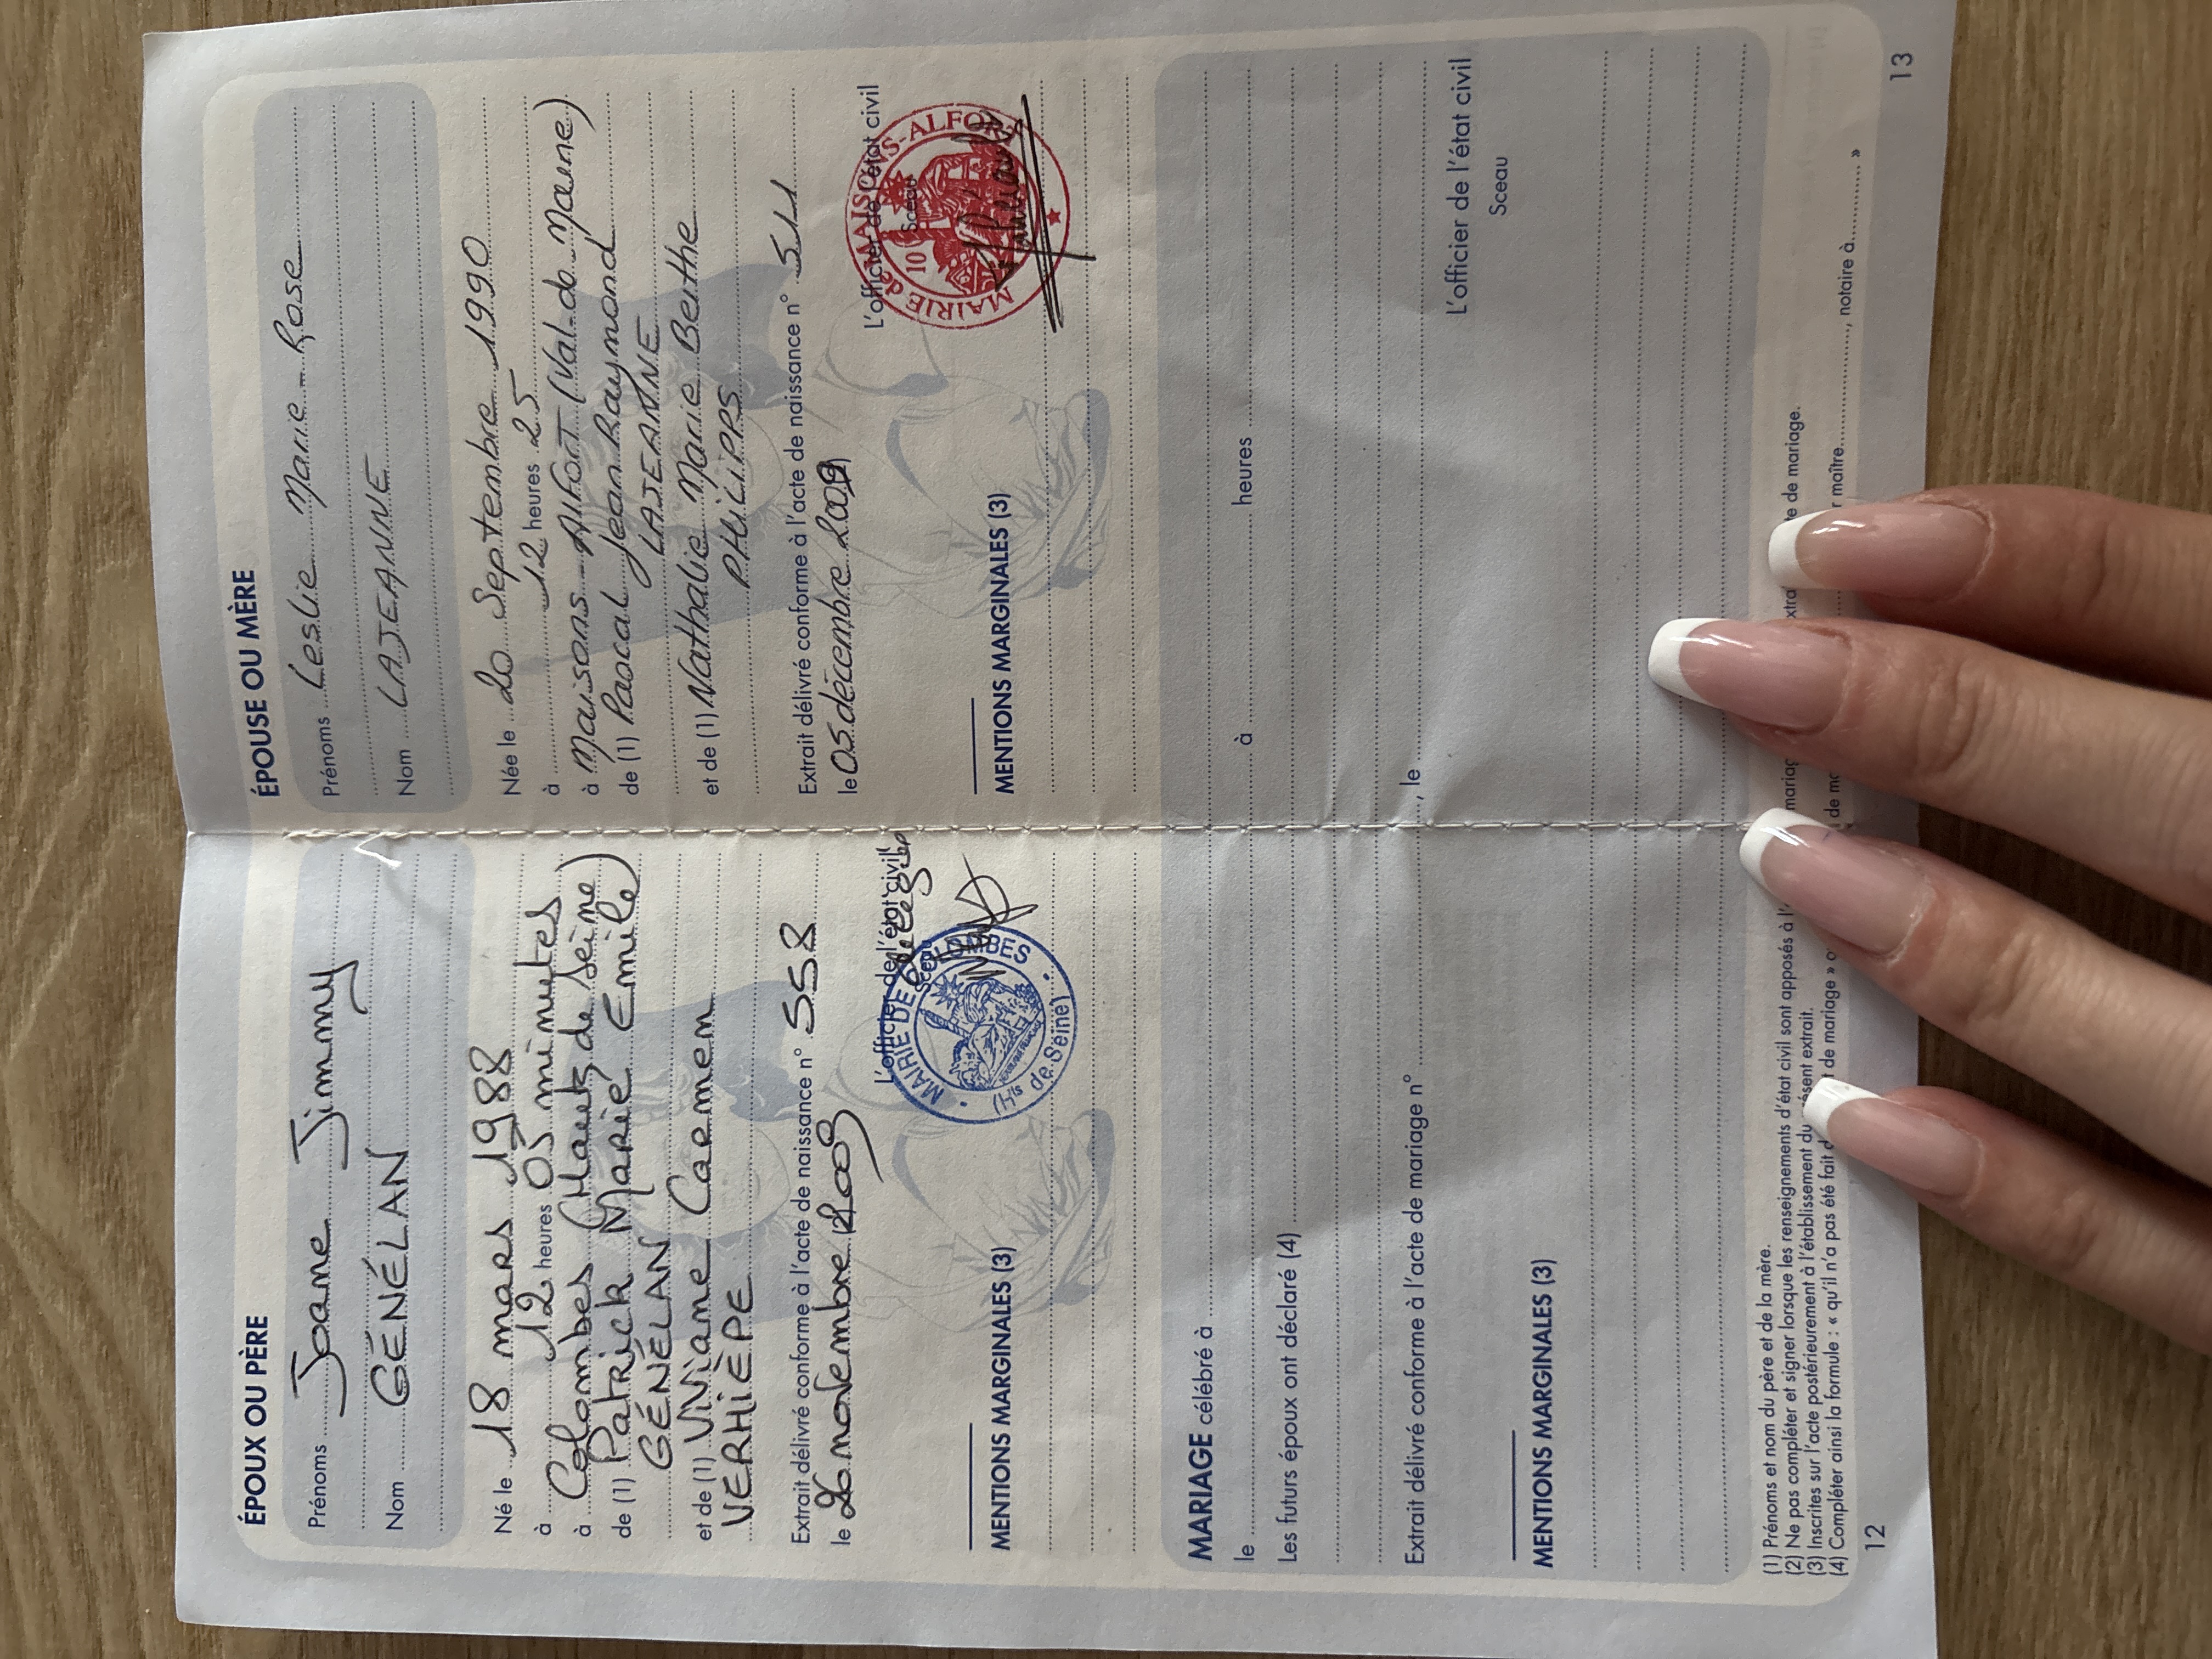 ÉPOUX OU PÈRE
Prénoms Joane Jimmy
Nom GÉNÉLAN
Né le 18 mars 1988
à 12 heures 05 minutes
à Colombes (Hauts de Seine)
de (1) Patrick Marie Emile
GÉNÉLAN
et de (1) Viviane Carmen
VERHIÈPE
Extrait délivré conforme à l'acte de naissance n° 558
le 26 novembre 2009
L'officier de l'état civil
Sceau
MAIRIE DE COLOMBES
(Hts de Seine)
MENTIONS MARGINALES (3)
ÉPOUSE OU MÈRE
Prénoms Leslie Marie-Rose
Nom LAJEANNE
Née le 20 Septembre 1990
à 12 heures 25
à Maisons-Alfort (Val-de-Marne)
de (1) Pascal Jean Raymond
LAJEANNE
et de (1) Nathalie Marie Berthe
PHILIPPS
Extrait délivré conforme à l'acte de naissance n° 511
le 05 décembre 2009
L'officier de l'état civil
Sceau
MAIRIE de MAISONS-ALFORT
10
MENTIONS MARGINALES (3)
MARIAGE célébré à
le à heures
Les futurs époux ont déclaré (4)
Extrait délivré conforme à l'acte de mariage n° , le
L'officier de l'état civil
Sceau
MENTIONS MARGINALES (3)
(1) Prénoms et nom du père et de la mère.
(2) Ne pas compléter et signer lorsque les renseignements d'état civil sont apposés à l' mariag extra te de mariage.
(3) Inscrites sur l'acte postérieurement à l'établissement du présent extrait.
(4) Compléter ainsi la formule : « qu'il n'a pas été fait de mariage » de maître , notaire à »
12
13